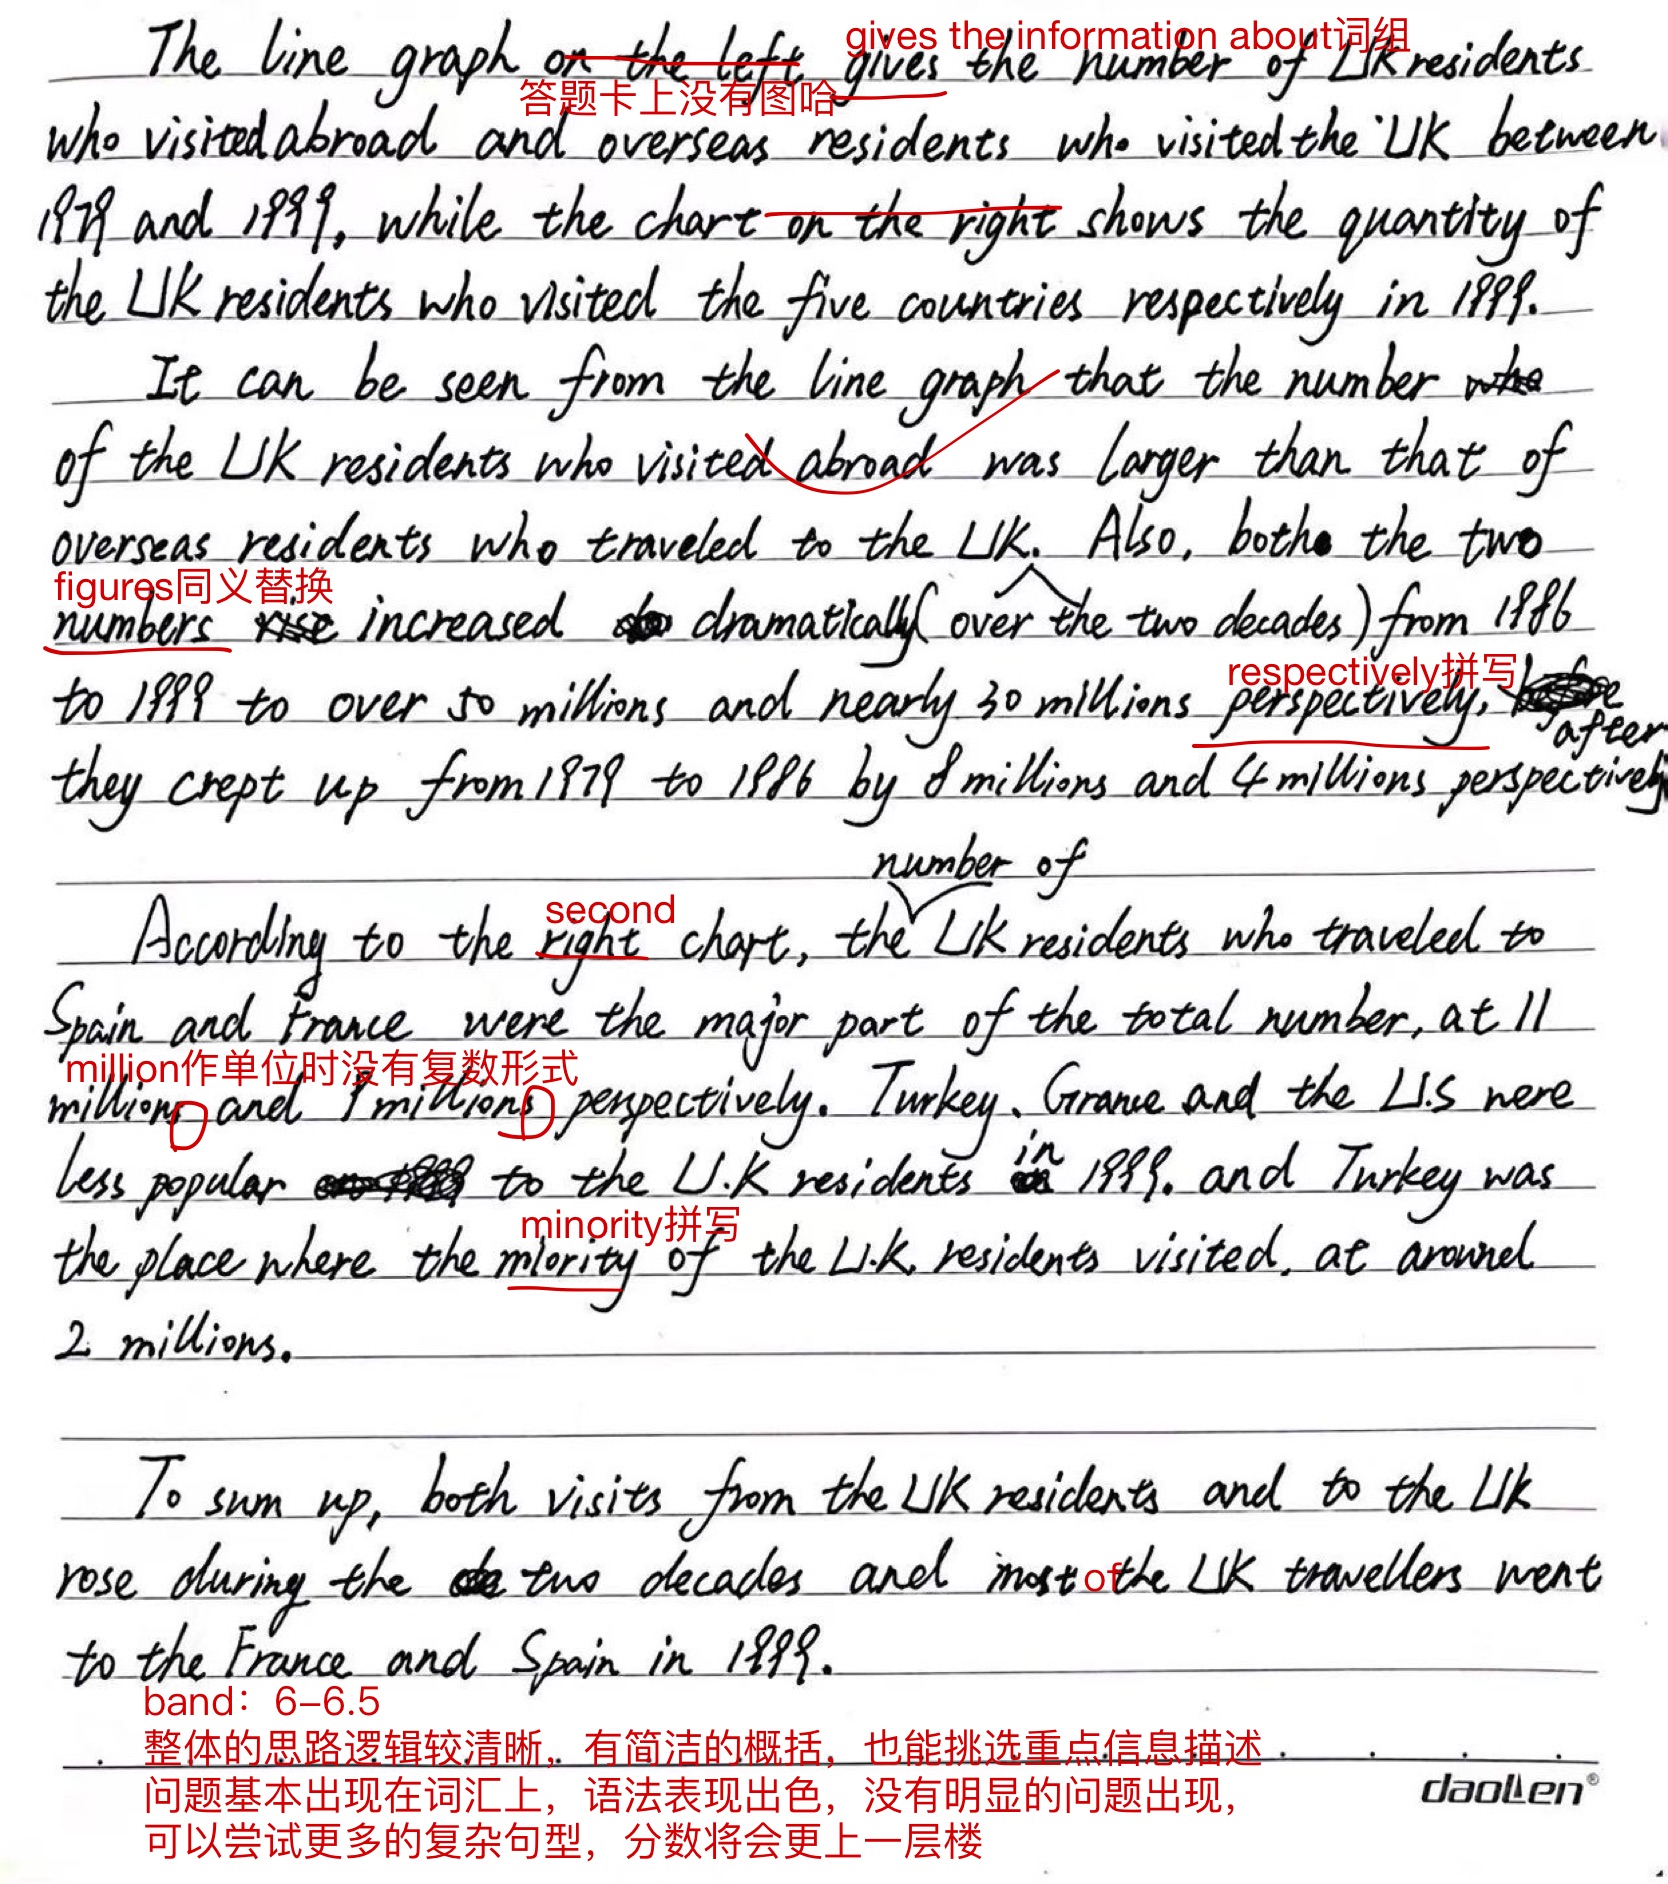 gives the information about词组
The line graph on the left gives the number of UK residents
答题卡上没有图哈
who visited abroad and overseas residents who visited the UK between
1979 and 1999, while the chart on the right shows the quantity of
the UK residents who visited the five countries respectively in 1999.
It can be seen from the line graph that the number who
of the UK residents who visited abroad was larger than that of
overseas residents who traveled to the UK. Also, both the two
figures同义替换
numbers rise increased dramatically (over the two decades) from 1986
respectively拼写
to 1999 to over 50 millions and nearly 30 millions perspectively, before
after
they crept up from 1979 to 1986 by 8 millions and 4 millions perspectively
number of
second
According to the right chart, the UK residents who traveled to
Spain and France were the major part of the total number, at 11
million作单位时没有复数形式
millions and 9 millions perspectively. Turkey, Grance and the U.S were
in
less popular to the U.K residents 1999. and Turkey was
minority拼写
the place where the miority of the U.K. residents visited, at around
2 millions.
To sum up, both visits from the UK residents and to the UK
rose during the two decades and most of the UK travellers went
to the France and Spain in 1999.
band：6-6.5
整体的思路逻辑较清晰，有简洁的概括，也能挑选重点信息描述
问题基本出现在词汇上，语法表现出色，没有明显的问题出现，
可以尝试更多的复杂句型，分数将会更上一层楼
daolen®